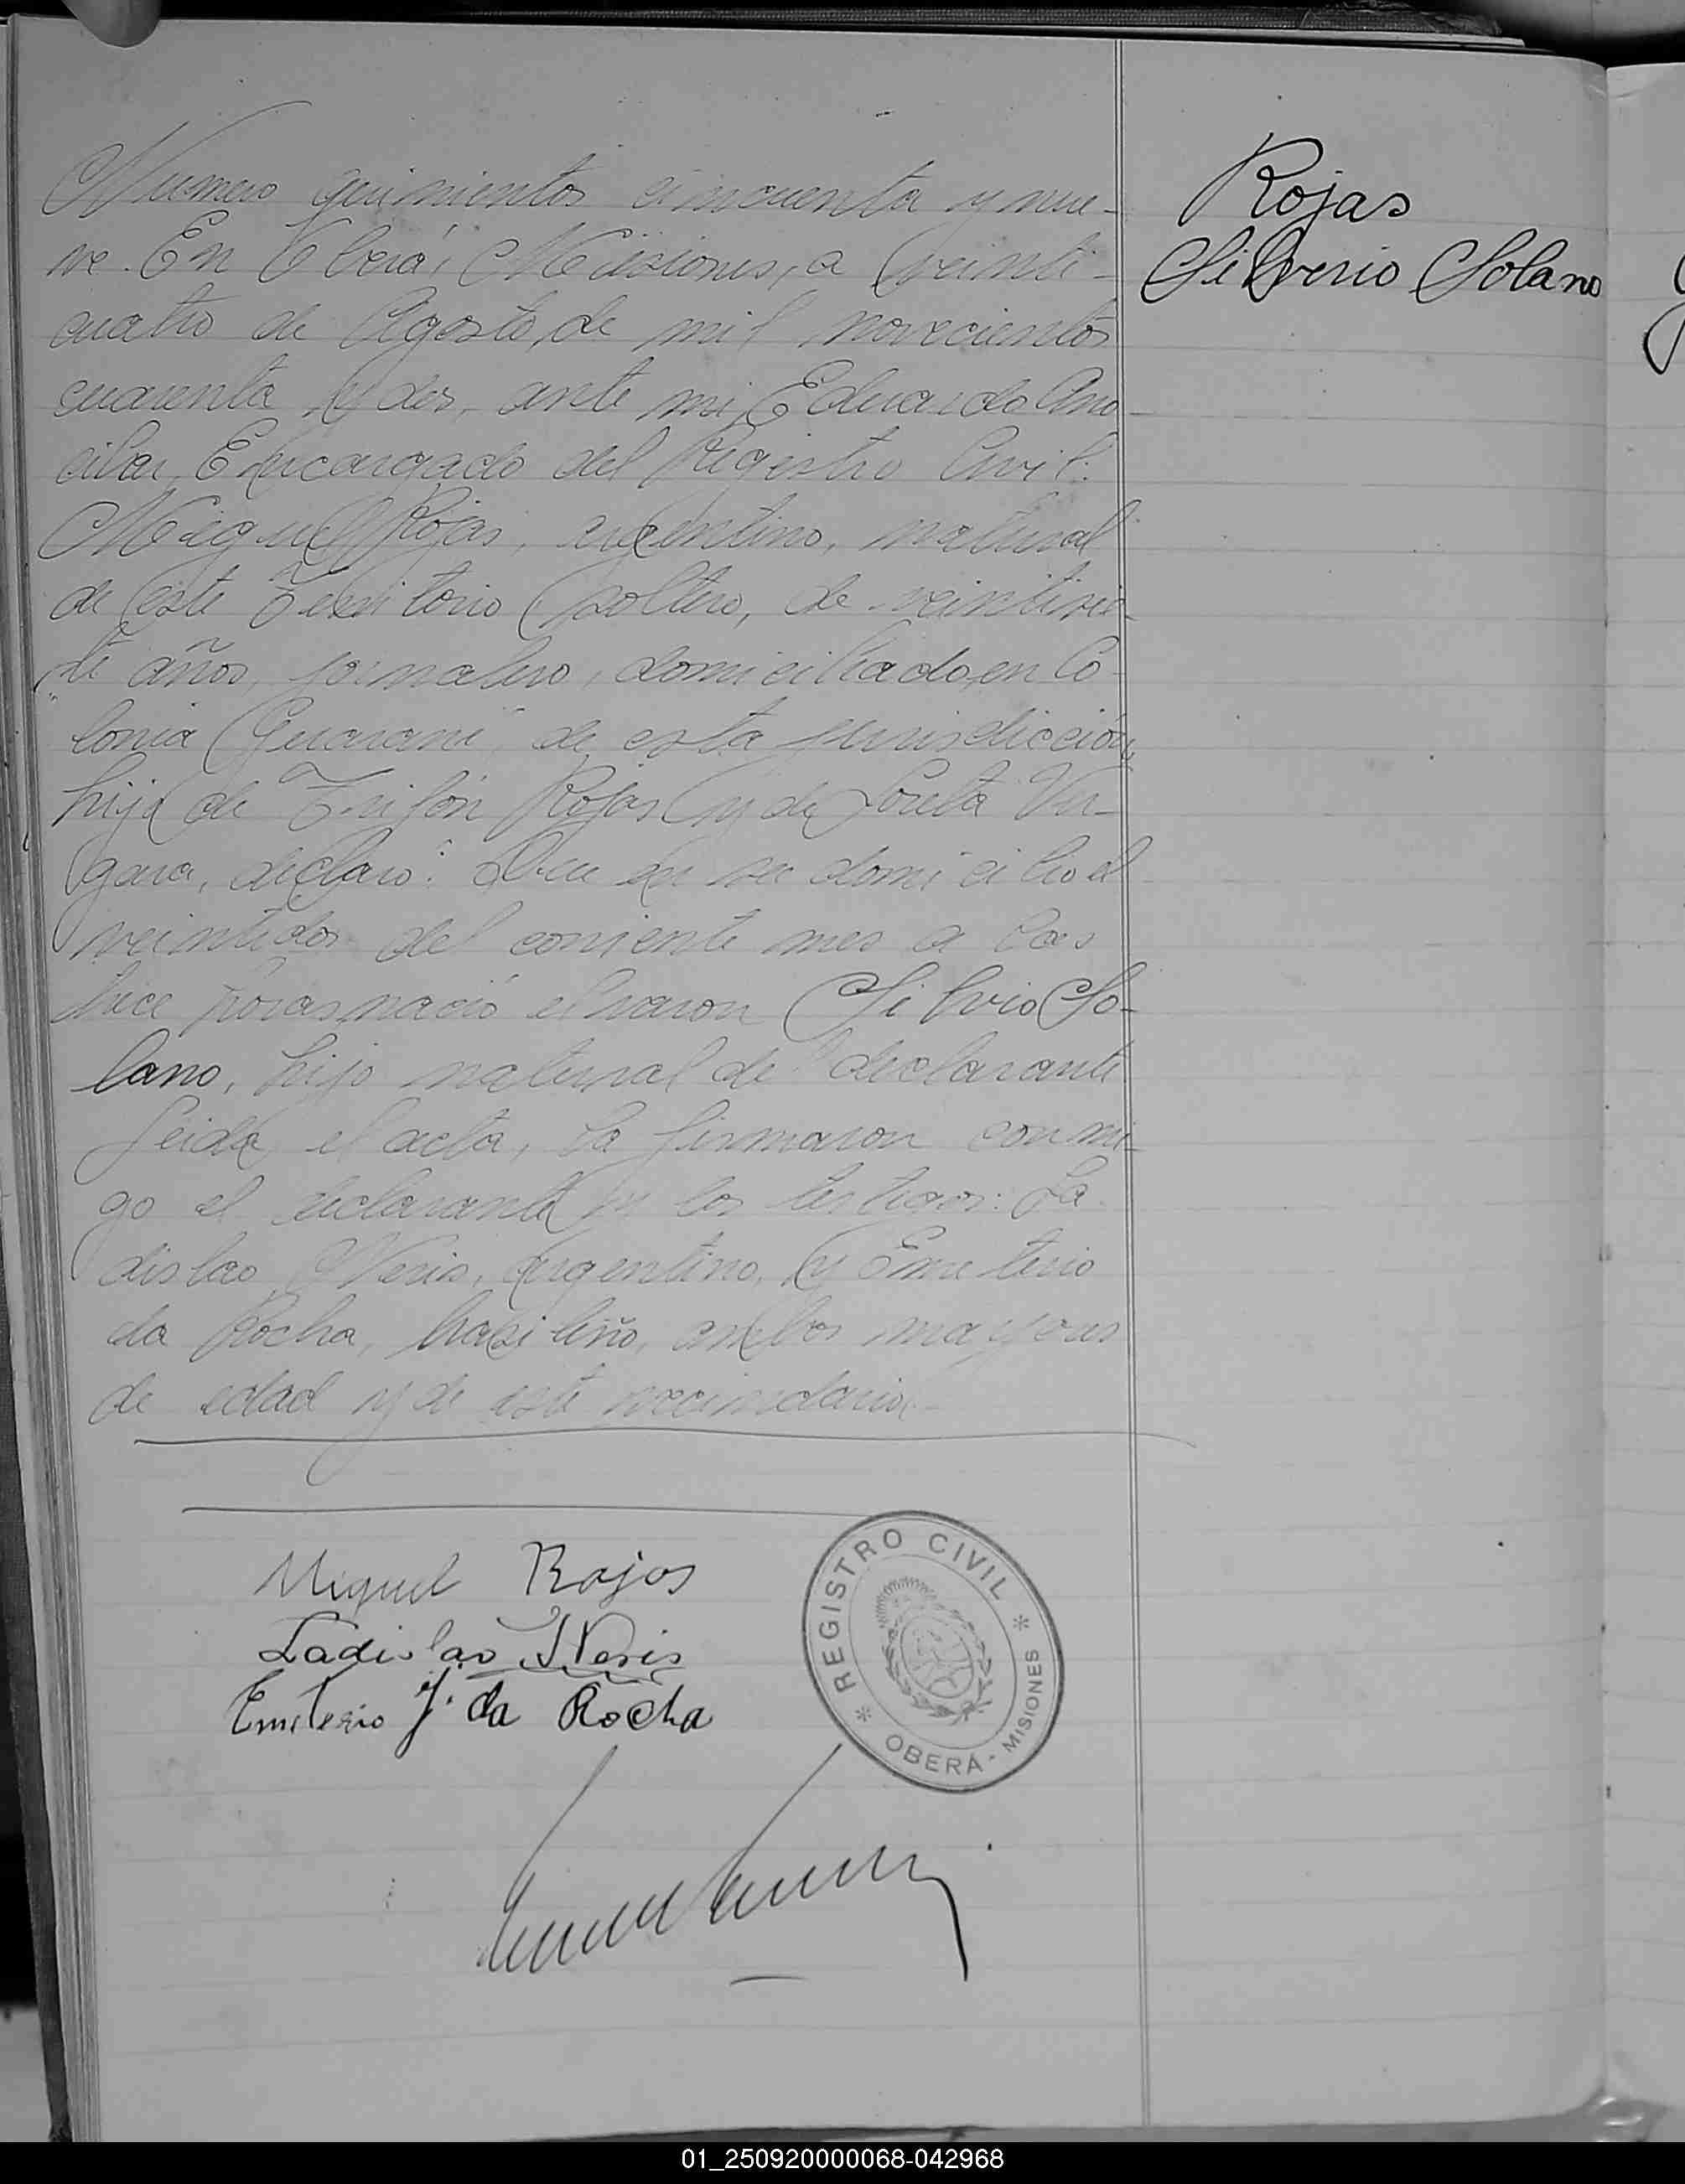 Numero quinientos cincuenta y nue-
ve. En Oberá, Misiones, a veinti-
cuatro de Agosto, de mil novecientos
cuarenta y dos, ante mi, Eduardo
Encargado del Registro Civil:
Miguel Rojas, argentino, natural
de este Territorio soltero, de veintisie-
te años, jornalero, domiciliado, en Co-
lonia "Guarani" de esta jurisdicción,
hijo de Trifón Rojas y de Loreta Ver-
gara, declaró: Que en su domicilio el
veintidos del corriente mes a las
horas nació el varon Silvio So-
lano, hijo natural del declarante
Leida el acta, la firmaron conmi-
go el declarante y los testigos: La
dislao Neris, argentino, y Emeterio
da Rocha, brasileño, ambos mayores
de edad y de este vecindario.-
Rojas
Silverio Solano
Miguel Rojas
Ladislao Neris
Emeterio J. da Rocha
* REGISTRO CIVIL *
OBERÁ - MISIONES
01_250920000068-042968